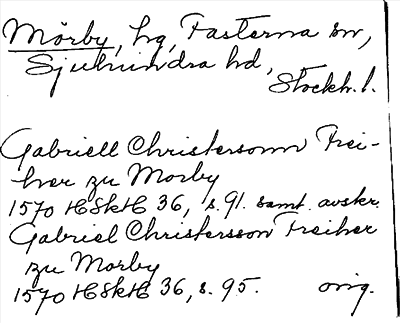 Mörby, hg, Fasterna sn,
Sjuhundra hd,
Stockh. l.
Gabriell Christersonn Frei-
herr zu Morby
1570 HSkH 36, s. 91. samt. avskr.
Gabriel Christersson Freiher
zu Morby
1570 HSkH 36, s. 95. orig.